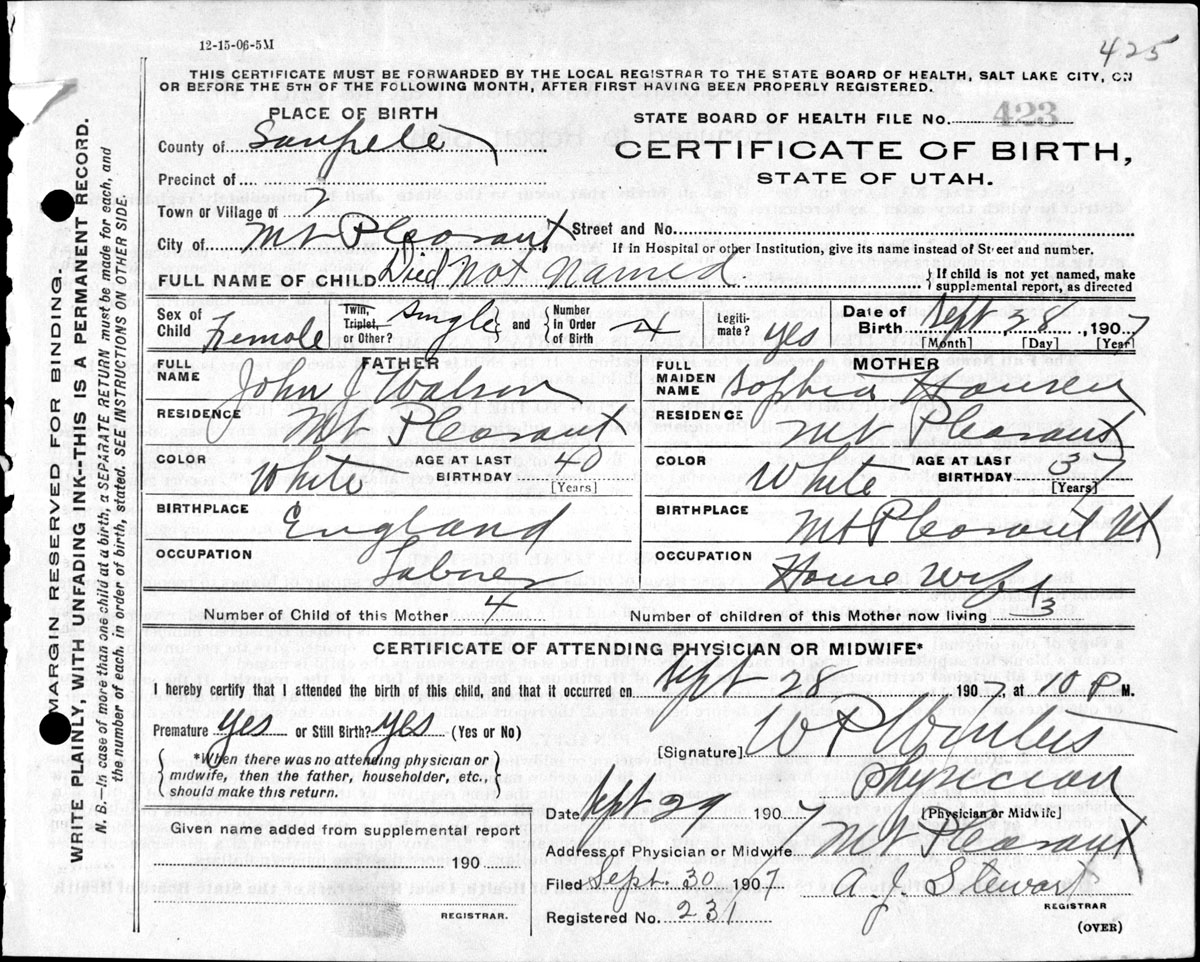 12-15-06-5M
425
THIS CERTIFICATE MUST BE FORWARDED BY THE LOCAL REGISTRAR TO THE STATE BOARD OF HEALTH, SALT LAKE CITY, ON
OR BEFORE THE 5TH OF THE FOLLOWING MONTH, AFTER FIRST HAVING BEEN PROPERLY REGISTERED.
PLACE OF BIRTH
County of Sanpete
Precinct of
Town or Village of
City of Mt Pleasant
STATE BOARD OF HEALTH FILE No. 423
CERTIFICATE OF BIRTH,
STATE OF UTAH.
Street and No.
If in Hospital or other Institution, give its name instead of Street and number.
FULL NAME OF CHILD Died Not Named
If child is not yet named, make
supplemental report, as directed
Sex of Child Female
Twin, Triplet, or Other? Single and Number in Order of Birth 4
Legitimate? yes
Date of Birth Sept 28, 1907
[Month] [Day] [Year]
FATHER
FULL NAME John J. Watson
RESIDENCE Mt Pleasant
COLOR White AGE AT LAST BIRTHDAY 40
[Years]
BIRTHPLACE England
OCCUPATION Labor
Number of Child of this Mother 4
MOTHER
FULL MAIDEN NAME Sophia Hansen
RESIDENCE Mt Pleasant
COLOR White AGE AT LAST BIRTHDAY 37
[Years]
BIRTHPLACE Mt Pleasant Ut
OCCUPATION House Wife
Number of children of this Mother now living 3
CERTIFICATE OF ATTENDING PHYSICIAN OR MIDWIFE*
I hereby certify that I attended the birth of this child, and that it occurred on Sept 28 1907, at 10 P M.
Premature yes or Still Birth? yes (Yes or No)
*When there was no attending physician or
midwife, then the father, householder, etc.,
should make this return.
[Signature] W P Winters
Physician
[Physician or Midwife]
Date Sept 29 1907
Address of Physician or Midwife Mt Pleasant
Given name added from supplemental report
190
REGISTRAR.
Filed Sept. 30 1907
A. J. Stewart
REGISTRAR
Registered No. 231
(OVER)
MARGIN RESERVED FOR BINDING.
WRITE PLAINLY, WITH UNFADING INK--THIS IS A PERMANENT RECORD.
N. B.--In case of more than one child at a birth, a SEPARATE RETURN must be made for each, and
the number of each, in order of birth, stated. SEE INSTRUCTIONS ON OTHER SIDE.